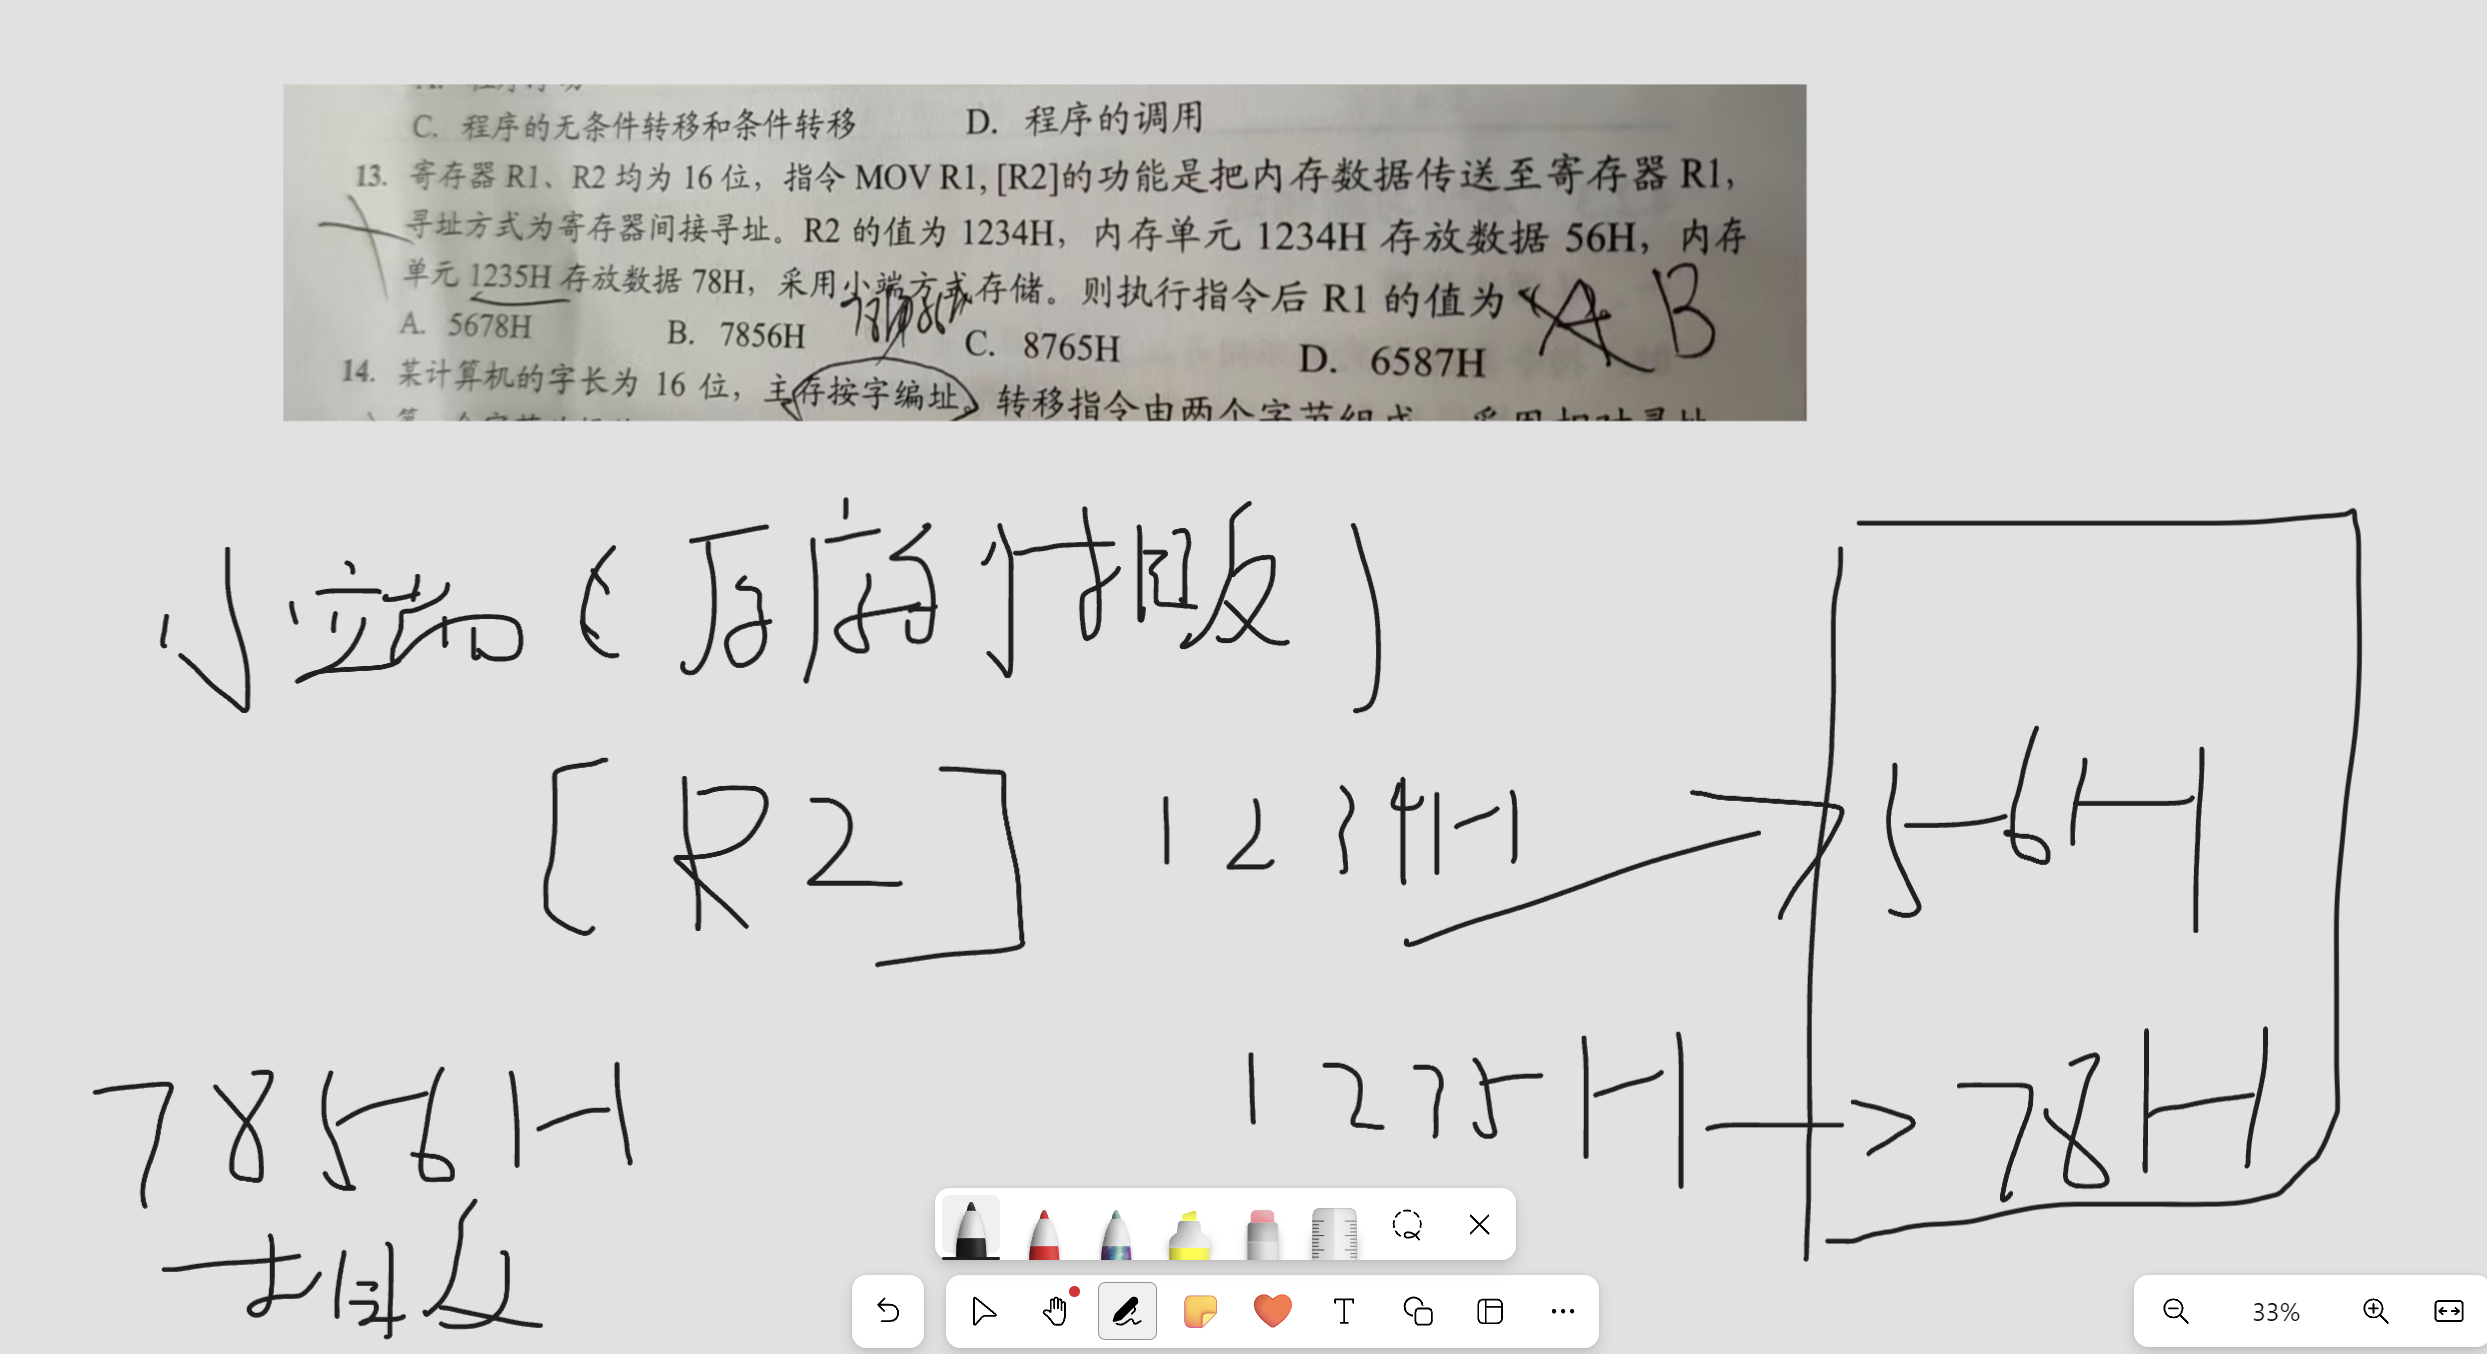 C. 程序的无条件转移和条件转移 D. 程序的调用
13. 寄存器 R1、R2 均为 16 位，指令 MOV R1, [R2]的功能是把内存数据传送至寄存器 R1，
寻址方式为寄存器间接寻址。R2 的值为 1234H，内存单元 1234H 存放数据 56H，内存
单元 1235H 存放数据 78H，采用小端方式存储。则执行指令后 R1 的值为（ ）。 A B
A. 5678H B. 7856H C. 8765H D. 6587H
14. 某计算机的字长为 16 位，主存按字编址。转移指令由两个字节组成，采用相对寻址
小端（ 相反）
[R2] 1234H 56H
7856H 1235H 78H
相反
33%